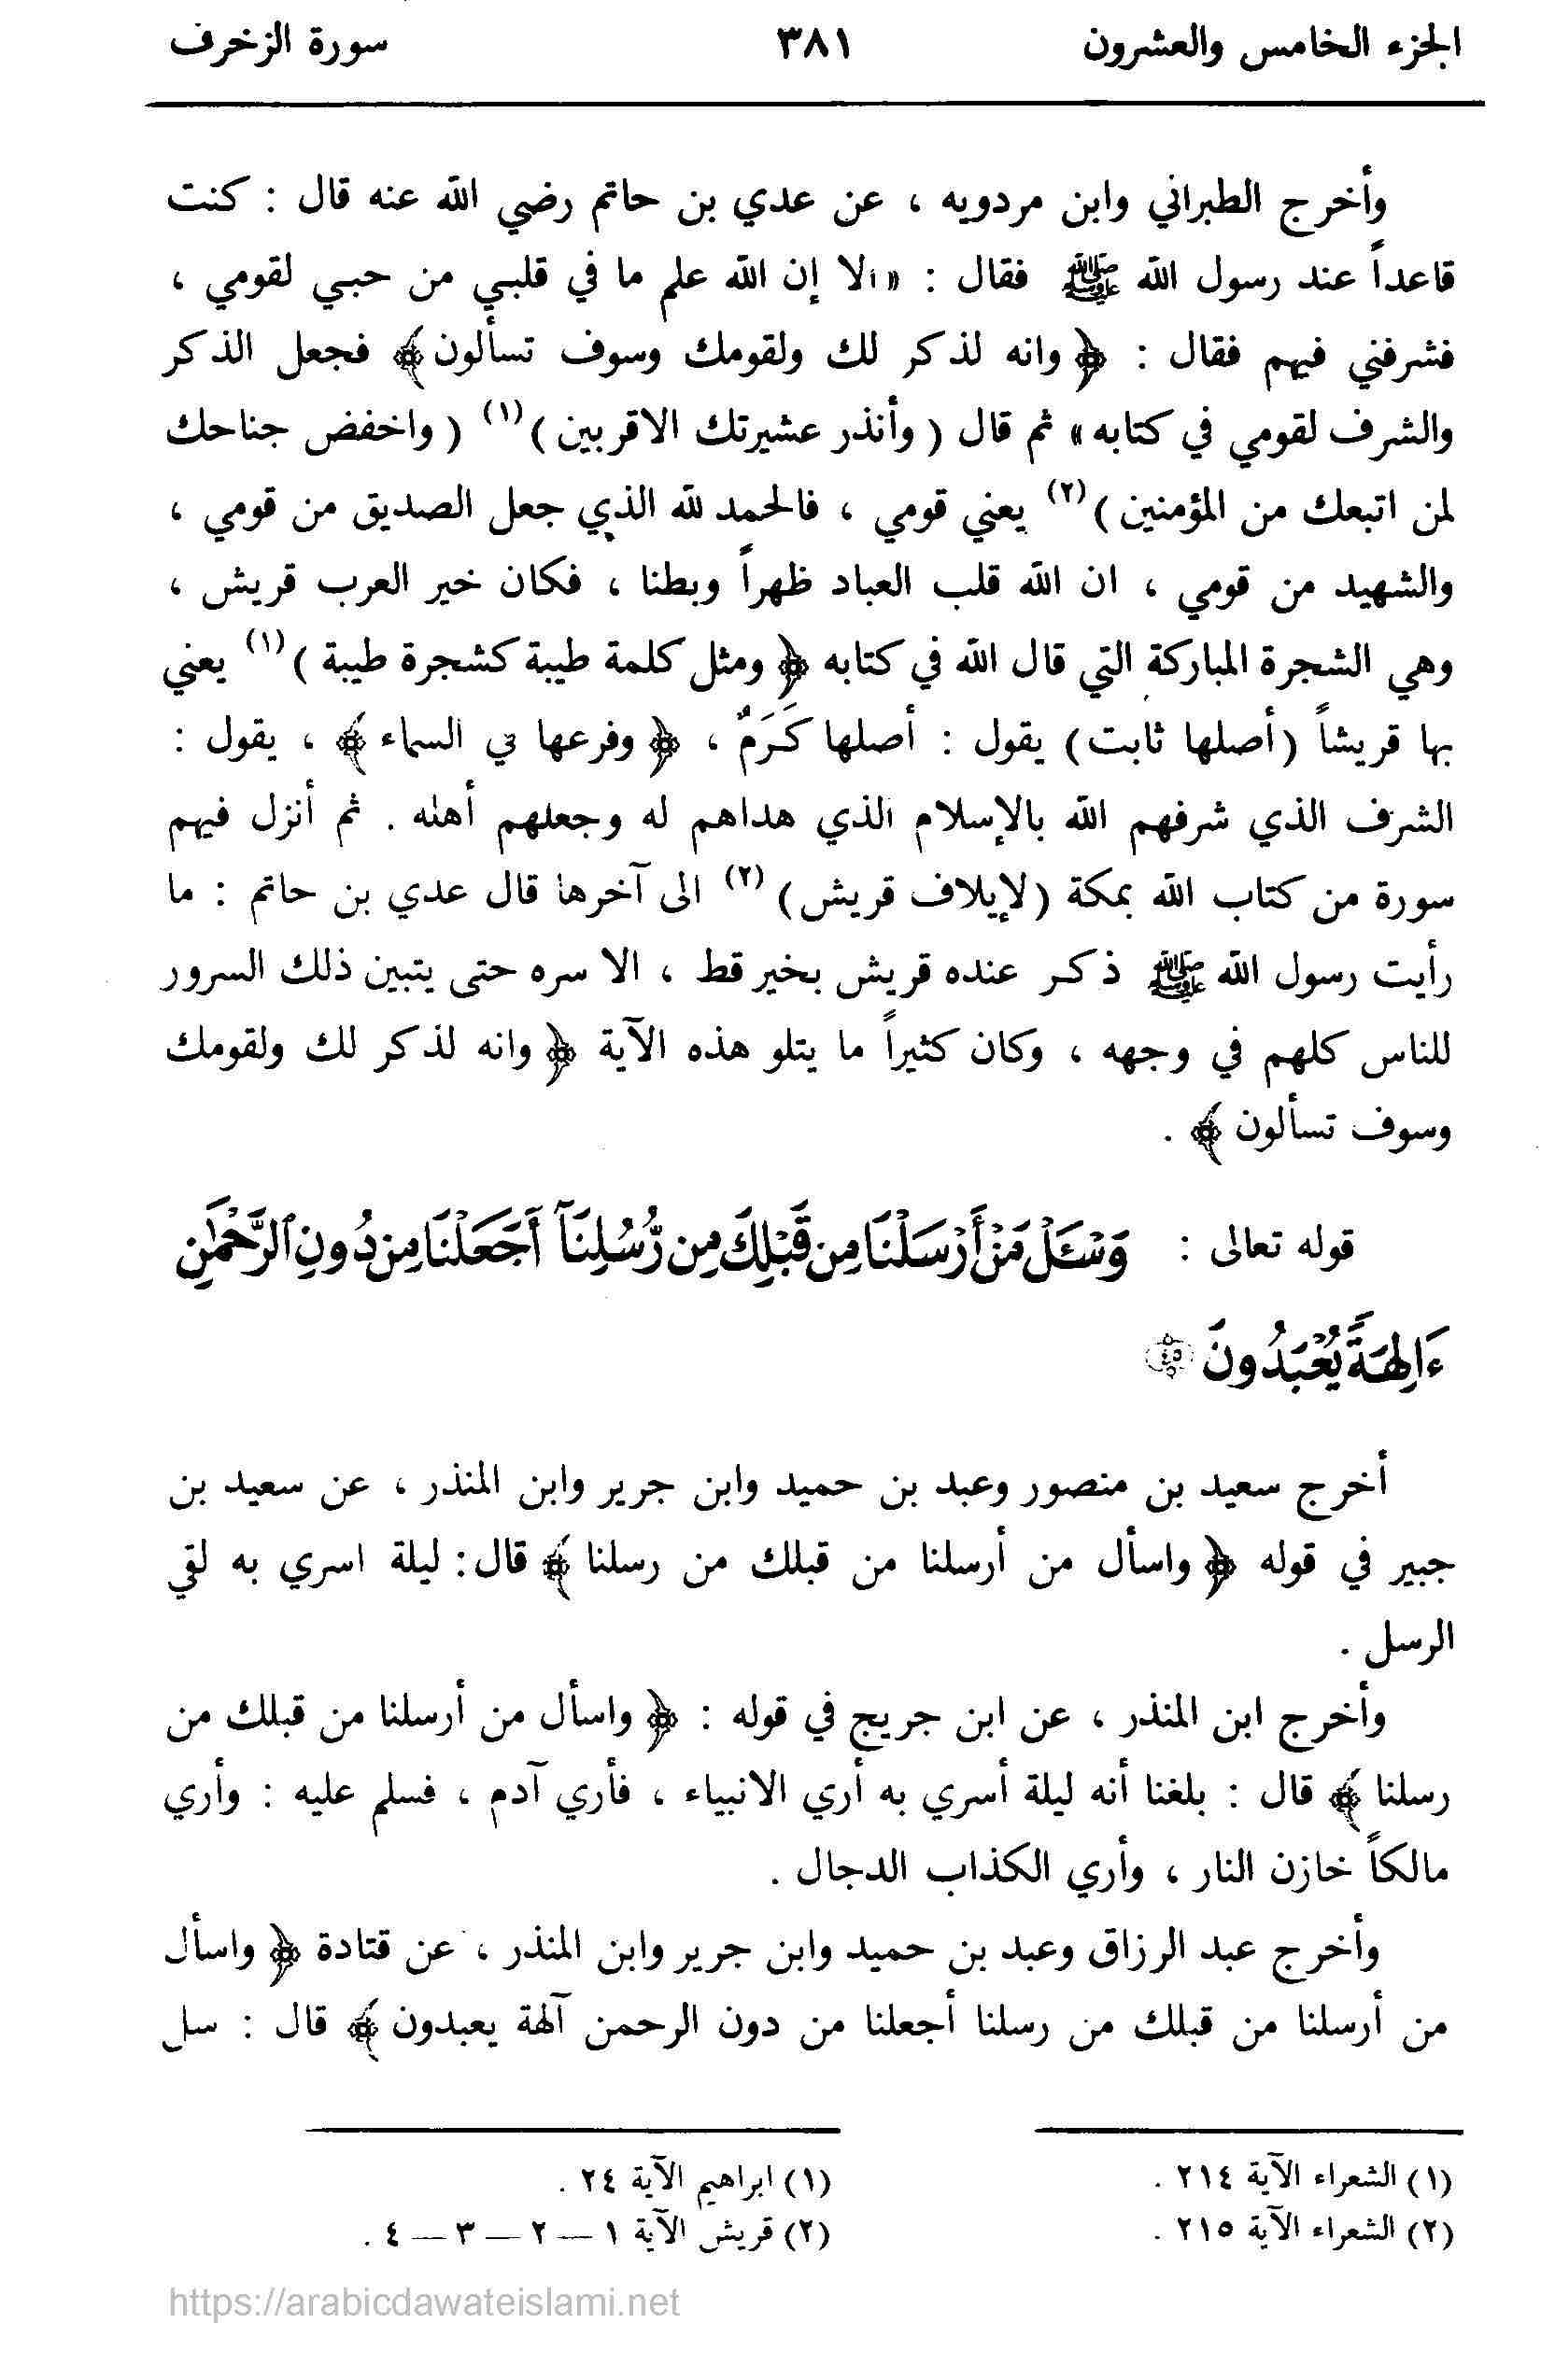 الجزء الخامس والعشرون ٣٨١ سورة الزخرف
وأخرج الطبراني وابن مردويه ، عن عدي بن حاتم رضي الله عنه قال : كنت
قاعداً عند رسول الله ﷺ فقال : « ألا إن الله علم ما في قلبي من حبي لقومي ،
فشرفني فيهم فقال : ﴿ وانه لذكر لك ولقومك وسوف تسألون﴾ فجعل الذكر
والشرف لقومي في كتابه » ثم قال ( وأنذر عشيرتك الاقربين )(١) ( واخفض جناحك
لمن اتبعك من المؤمنين )(٢) يعني قومي ، فالحمد لله الذي جعل الصديق من قومي ،
والشهيد من قومي ، ان الله قلب العباد ظهراً وبطنا ، فكان خير العرب قريش ،
وهي الشجرة المباركة التي قال الله في كتابه ﴿ ومثل كلمة طيبة كشجرة طيبة )(١) يعني
بها قريشاً (أصلها ثابت) يقول : أصلها كَرَمٌ ، ﴿ وفرعها في السماء ﴾ ، يقول :
الشرف الذي شرفهم الله بالإسلام الذي هداهم له وجعلهم أهله . ثم أنزل فيهم
سورة من كتاب الله بمكة (لإيلاف قريش) (٢) الى آخرها قال عدي بن حاتم : ما
رأيت رسول الله ﷺ ذكر عنده قريش بخير قط ، الا سره حتى يتبين ذلك السرور
للناس كلهم في وجهه ، وكان كثيراً ما يتلو هذه الآية ﴿ وانه لذكر لك ولقومك
وسوف تسألون ﴾ .
قوله تعالى : وَسْـَٔلْ مَنْ أَرْسَلْنَا مِن قَبْلِكَ مِن رُّسُلِنَآ أَجَعَلْنَا مِن دُونِ ٱلرَّحْمَٰنِ
ءَالِهَةً يُعْبَدُونَ ٤٥
أخرج سعيد بن منصور وعبد بن حميد وابن جرير وابن المنذر ، عن سعيد بن
جبير في قوله ﴿ واسأل من أرسلنا من قبلك من رسلنا ﴾ قال: ليلة اسري به لقي
الرسل .
وأخرج ابن المنذر ، عن ابن جريج في قوله : ﴿ واسأل من أرسلنا من قبلك من
رسلنا ﴾ قال : بلغنا أنه ليلة أسري به أري الانبياء ، فأري آدم ، فسلم عليه : وأري
مالكاً خازن النار ، وأري الكذاب الدجال .
وأخرج عبد الرزاق وعبد بن حميد وابن جرير وابن المنذر ، عن قتادة ﴿ واسأل
من أرسلنا من قبلك من رسلنا أجعلنا من دون الرحمن آلهة يعبدون ﴾ قال : سل
(١) الشعراء الآية ٢١٤ .
(٢) الشعراء الآية ٢١٥ .
(١) ابراهيم الآية ٢٤ .
(٢) قريش الآية ١ — ٢ — ٣ — ٤ .
https://arabicdawateislami.net